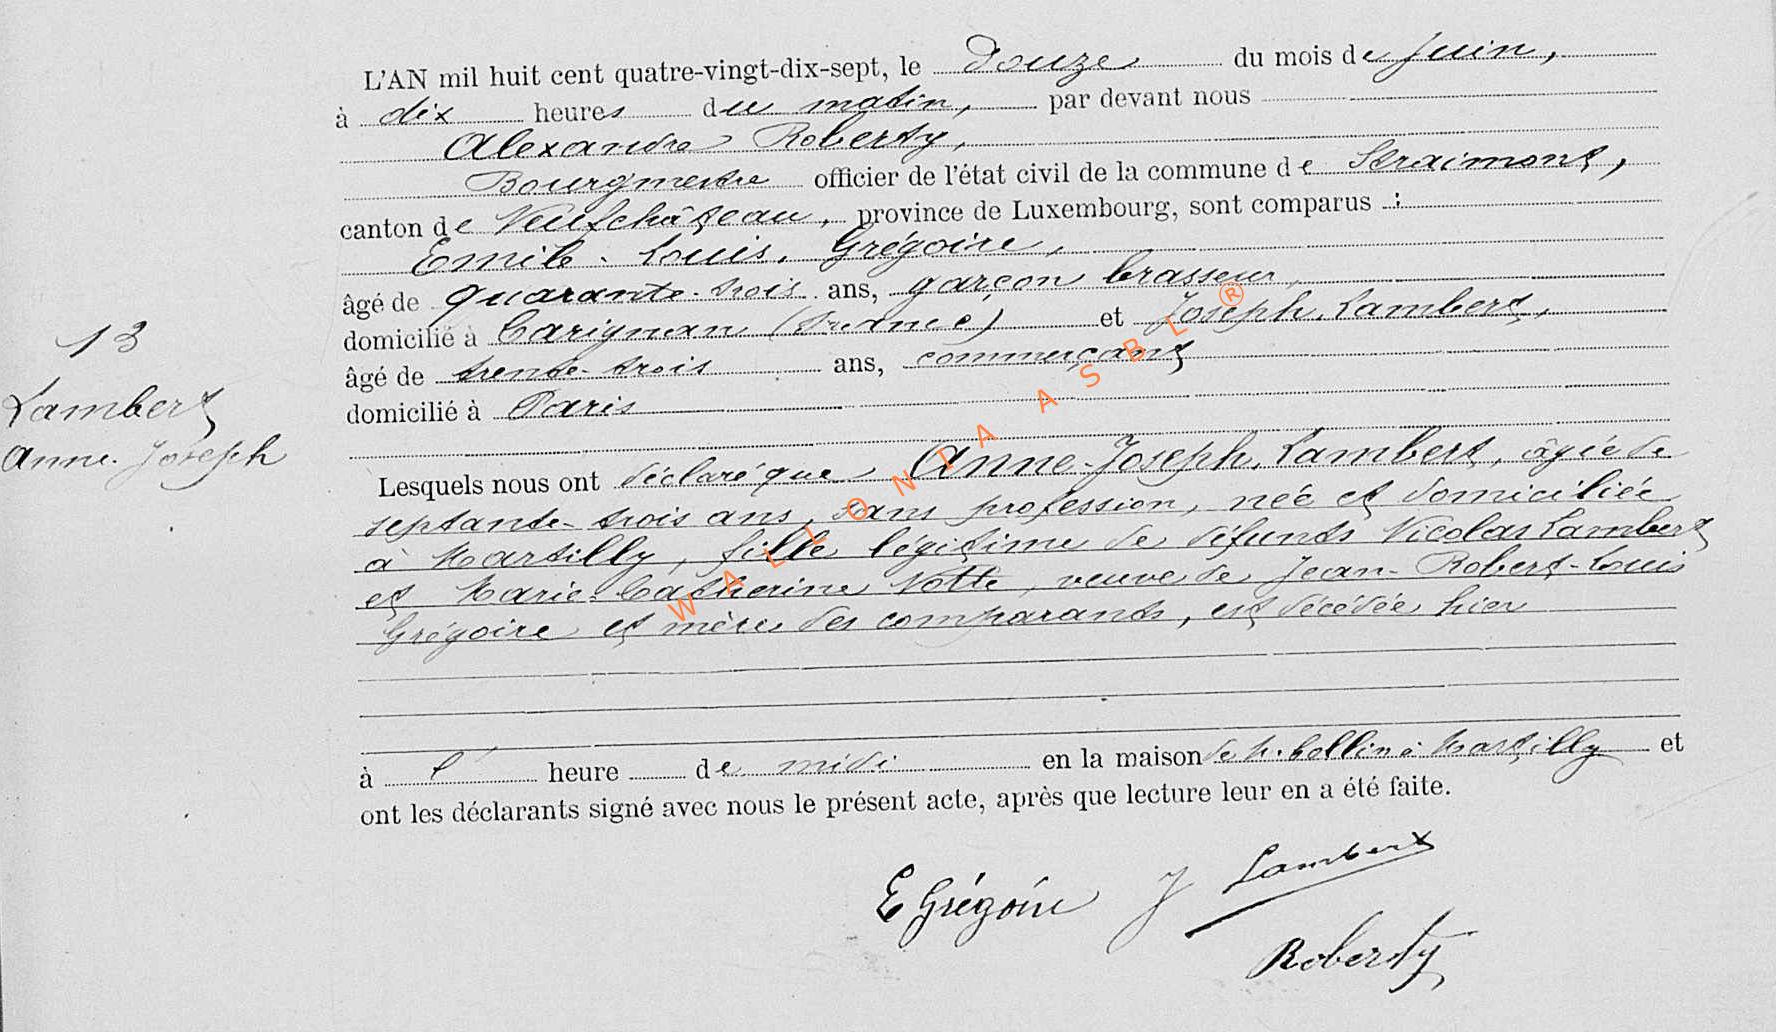 L'AN mil huit cent quatre-vingt-dix-sept, le douze du mois de Juin,
à dix heures du matin, par devant nous
Alexandre Roberty,
Bourgmestre officier de l'état civil de la commune de Straimont,
canton de Neufchâteau, province de Luxembourg, sont comparus :
Emile-Louis, Grégoire,
âgé de quarante-trois ans, garçon brasseur,
domicilié à Carignan (France) et Joseph, Lambert,
âgé de trente-trois ans, commerçant
domicilié à Paris
13
Lambert
Anne-Joseph
Lesquels nous ont déclaré que Anne-Joseph, Lambert, âgée de
septante-trois ans, sans profession, née et domiciliée
à Martilly, fille légitime de défunts Nicolas Lambert
et Marie-Catherine Notte, veuve de Jean-Robert-Louis
Grégoire et mère des comparants, est décédée hier
à l' heure de midi en la maison de à Martilly et
ont les déclarants signé avec nous le présent acte, après que lecture leur en a été faite.
E Grégoire J Lambert
Roberty
WALLONDA ASBL ®